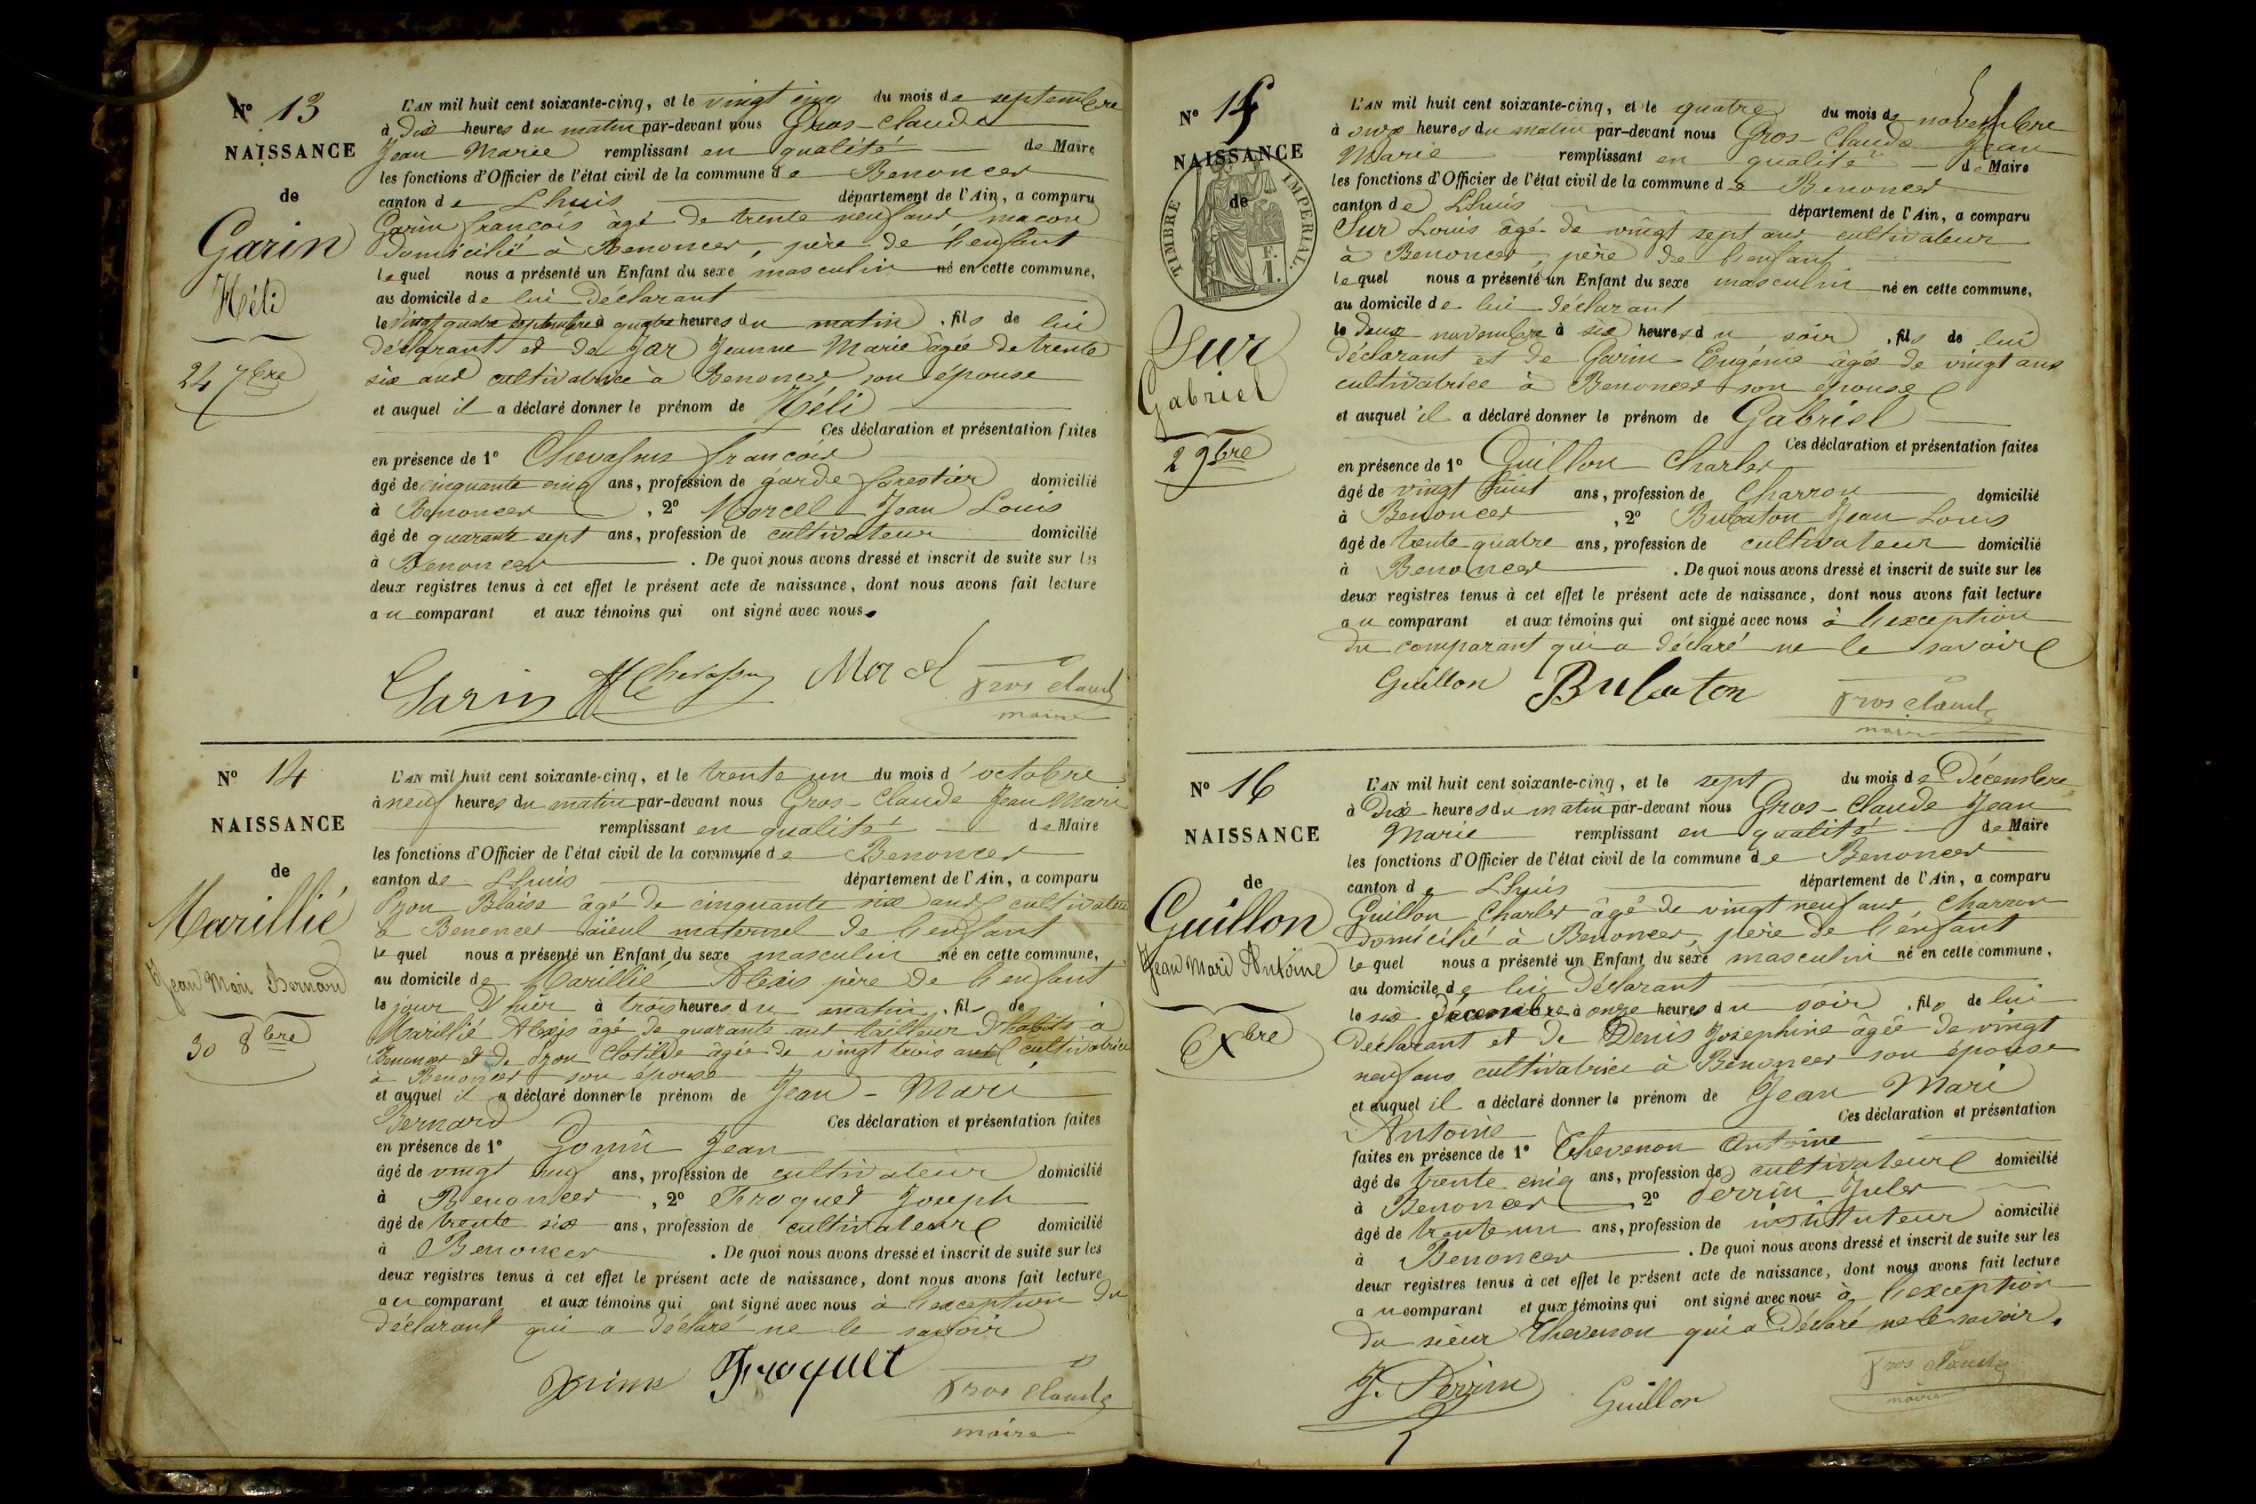 N° 13
NAISSANCE
de
Garin
Héli
24 7bre
L'AN mil huit cent soixante-cinq, et le vingt cinq du mois de septembre
à dix heures du matin par-devant nous Gros-Claude
Jean Marie remplissant en qualité de Maire
les fonctions d'Officier de l'état civil de la commune de Benonces
canton de Lhuis département de l'Ain, a comparu
Garin françois âgé de trente neuf ans, maçon
domicilié à Benonces, père de l'enfant
lequel nous a présenté un Enfant du sexe masculin né en cette commune,
au domicile de lui déclarant
le vingt quatre septembre à quatre heures du matin, fils de lui
déclarant et de Jar Jeanne Marie âgée de trente
six ans cultivatrice à Benonces son épouse
et auquel il a déclaré donner le prénom de Héli
Ces déclaration et présentation faites
en présence de 1° Chevassus françois
âgé de cinquante cinq ans, profession de garde forestier domicilié
à Benonces, 2° Morcel Jean Louis
âgé de quarante sept ans, profession de cultivateur domicilié
à Benonces. De quoi nous avons dressé et inscrit de suite sur les
deux registres tenus à cet effet le présent acte de naissance, dont nous avons fait lecture
au comparant et aux témoins qui ont signé avec nous.
Garin Chevassus Morcel Gros Claude
maire
N° 14
NAISSANCE
de
Marillié
Jean Mari Bernard
30 8bre
L'AN mil huit cent soixante-cinq, et le trente un du mois d'octobre
à neuf heures du matin par-devant nous Gros-Claude Jean Mari
remplissant en qualité de Maire
les fonctions d'Officier de l'état civil de la commune de Benonces
canton de Lhuis département de l'Ain, a comparu
Blaise âgé de cinquante six ans cultivateur
à Benonces aïeul maternel de l'enfant
lequel nous a présenté un Enfant du sexe masculin né en cette commune,
au domicile de Marillié Alexis père de l'enfant
le jour d'hier à trois heures du matin, fils de
Marillié Alexis âgé de quarante ans tailleur d'habits à
Benonces et de Clotilde âgée de vingt trois ans cultivatrice
à Benonces son épouse
et auquel il a déclaré donner le prénom de Jean-Mari
Bernard Ces déclaration et présentation faites
en présence de 1° Jean
âgé de vingt neuf ans, profession de cultivateur domicilié
à Benonces, 2° Froquet Joseph
âgé de trente six ans, profession de cultivateur domicilié
à Benonces. De quoi nous avons dressé et inscrit de suite sur les
deux registres tenus à cet effet le présent acte de naissance, dont nous avons fait lecture
au comparant et aux témoins qui ont signé avec nous à l'exception du
déclarant qui a déclaré ne le savoir
Froquet Gros Claude
maire
N° 15
NAISSANCE
de
TIMBRE IMPERIAL.
F.
1.
Sur
Gabriel
2 9bre
L'AN mil huit cent soixante-cinq, et le quatre du mois de novembre
à onze heures du matin par-devant nous Gros-Claude Jean
Marie remplissant en qualité de Maire
les fonctions d'Officier de l'état civil de la commune de Benonces
canton de Lhuis département de l'Ain, a comparu
Sur Louis âgé de vingt sept ans cultivateur
à Benonces, père de l'enfant
lequel nous a présenté un Enfant du sexe masculin né en cette commune,
au domicile de lui déclarant
le deux novembre à six heures du soir, fils de lui
déclarant et de Garin Eugénie âgée de vingt ans
cultivatrice à Benonces son épouse
et auquel il a déclaré donner le prénom de Gabriel
Ces déclaration et présentation faites
en présence de 1° Guillon Charles
âgé de vingt huit ans, profession de Charron domicilié
à Benonces, 2° Bulaton Jean Louis
âgé de trente quatre ans, profession de cultivateur domicilié
à Benonces. De quoi nous avons dressé et inscrit de suite sur les
deux registres tenus à cet effet le présent acte de naissance, dont nous avons fait lecture
au comparant et aux témoins qui ont signé avec nous à l'exception
du comparant qui a déclaré ne le savoir
Guillon Bulaton Gros Claude
maire
N° 16
NAISSANCE
de
Guillon
Jean Mari Antoine
6 Xbre
L'AN mil huit cent soixante-cinq, et le sept du mois de Décembre
à dix heures du matin par-devant nous Gros-Claude Jean
Marie remplissant en qualité de Maire
les fonctions d'Officier de l'état civil de la commune de Benonces
canton de Lhuis département de l'Ain, a comparu
Guillon Charles âgé de vingt neuf ans, Charron
domicilié à Benonces, père de l'enfant
lequel nous a présenté un Enfant du sexe masculin né en cette commune,
au domicile de lui déclarant
le six Décembre à onze heures du soir, fils de lui
déclarant et de Denis Josephine âgée de vingt
neuf ans cultivatrice à Benonces son épouse
et auquel il a déclaré donner le prénom de Jean Mari
Antoine Ces déclaration et présentation
faites en présence de 1° Thevenon Antoine
âgé de trente cinq ans, profession de cultivateur domicilié
à Benonces 2° Perrin Jules
âgé de trente un ans, profession de instituteur domicilié
à Benonces. De quoi nous avons dressé et inscrit de suite sur les
deux registres tenus à cet effet le présent acte de naissance, dont nous avons fait lecture
au comparant et aux témoins qui ont signé avec nous à l'exception
du sieur Thevenon qui a déclaré ne le savoir.
J. Perrin Guillon Gros Claude
maire